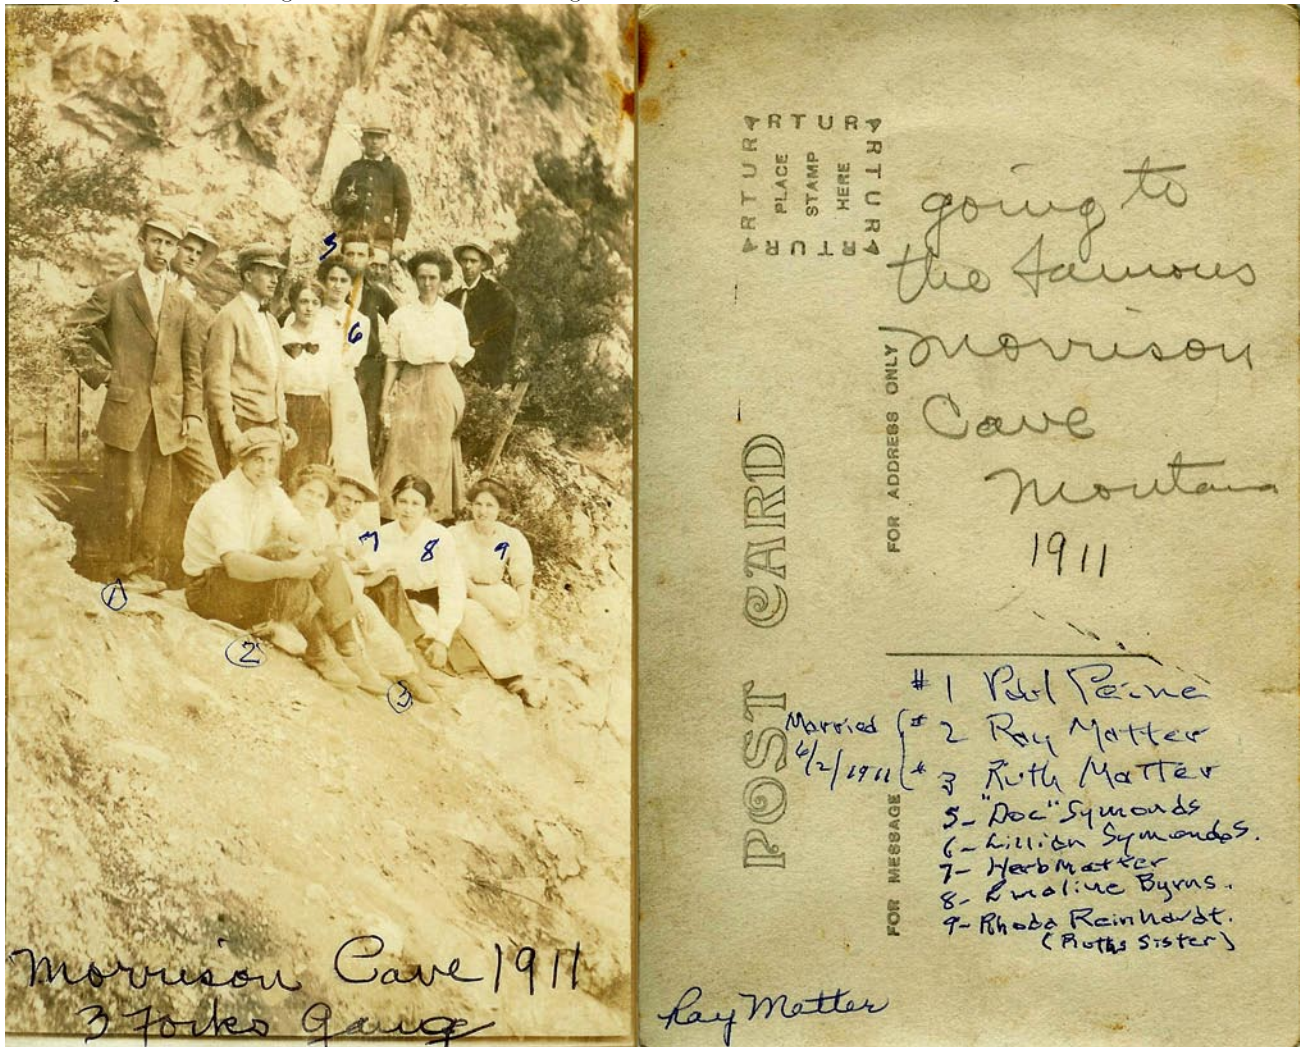 5
6
7
8
9
1
2
3
Morrison Cave 1911
3 Forks Gang
ARTURA
PLACE
STAMP
HERE
ARTURA
ARTURA
ARTURA
POST CARD
FOR ADDRESS ONLY
FOR MESSAGE
going to
the famous
Morrison
Cave
Montana
1911
# 1 Paul Peine
Married { # 2 Ray Matter
6/2/1911 { # 3 Ruth Matter
5- "Doc" Symonds
6- Lillian Symonds.
7- Herb Matter
8- Emaline Byrns.
9- Rhoda Reinhardt.
(Ruths Sister)
Ray Matter